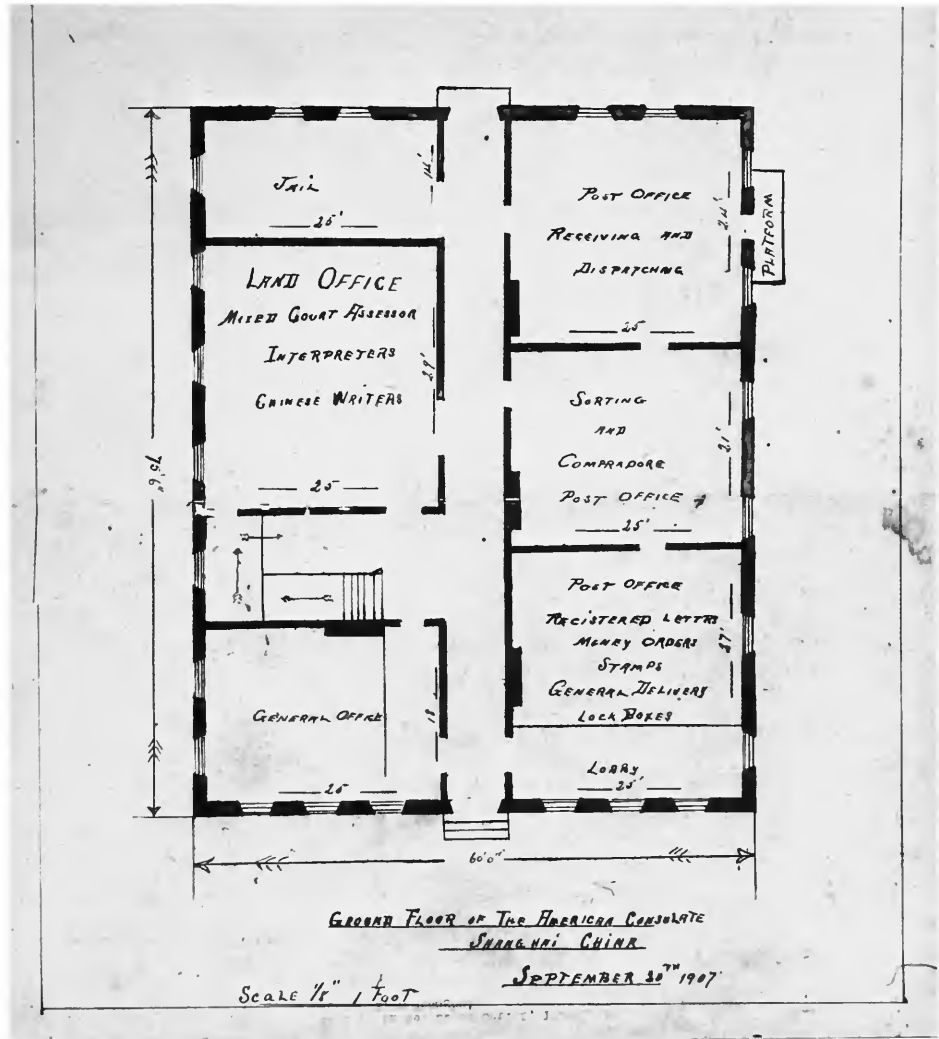 JAIL
14'
25'
LAND OFFICE
MIXED COURT ASSESSOR
INTERPRETERS
CHINESE WRITERS
29'
25
POST OFFICE
RECEIVING AND
DISPATCHING
24'
25
PLATFORM
SORTING
AND
COMPRADORE
POST OFFICE
21'
25'
75'6"
GENERAL OFFICE
18
25
POST OFFICE
REGISTERED LETTRS
MONEY ORDERS
STAMPS
GENERAL DELIVERY
LOCK BOXES
27'
LOBBY
25'
60'0"
GROUND FLOOR OF THE AMERICAN CONSULATE
SHANGHAI CHINA
SEPTEMBER 30TH 1907
SCALE 1/8" 1 FOOT